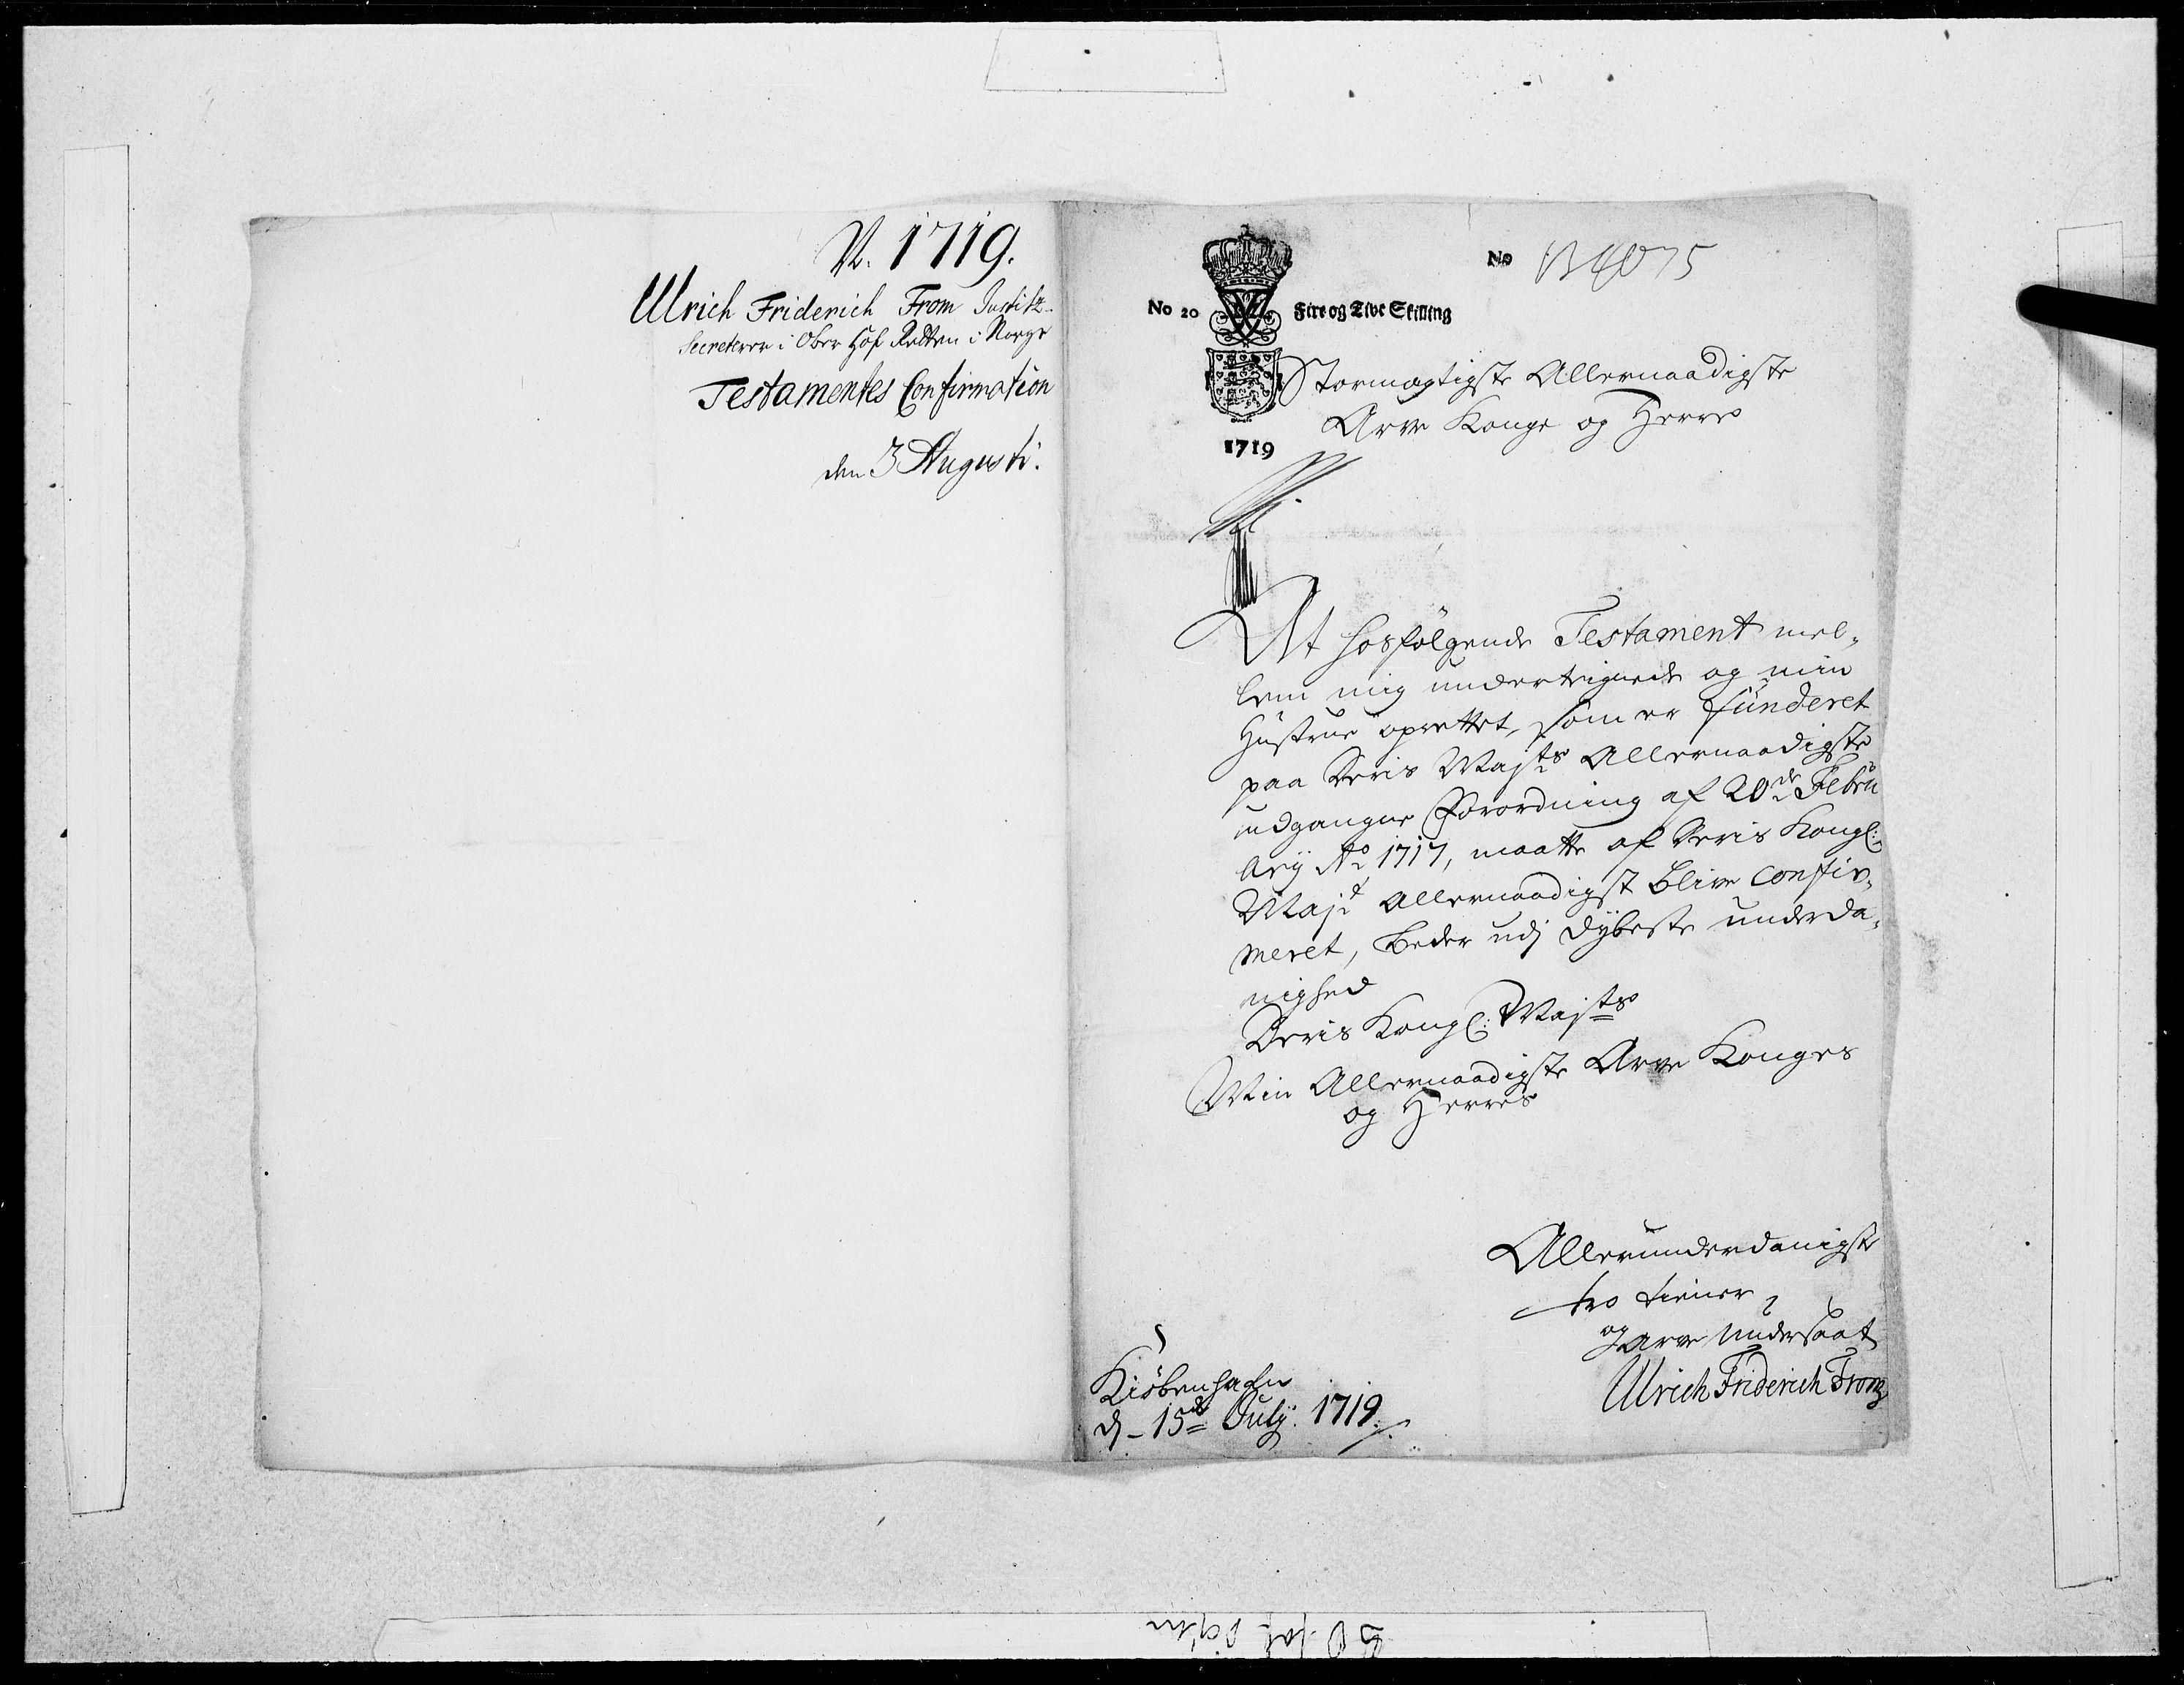 N. 1719.
Ulrich Friderich From Justitz-
Secreterer i Ober Hof Retten i Norge
Testamentes Confirmation
den 3 Augusti.
No
No 20
Fire og Tive Skilling
1719
Stormægtigste Allernaadigste
Arve Konge og Herre
At hosfølgende Testament mel-
lem mig undertegnede og min
Hustrue oprettet, som er funderet
paa Deris Majts Allernaadigste
udgangne Forordning af 20de Febru
arij Ao 1717, maatte af Deris Kongl:
Majt allernaadigst blive confir-
meret, beder udj dybeste underda-
nighed
Deris Kongl: Majts
Min Allernaadigste Arve Konges
og Herres
Allerunderdanigste
tro tiener
og arve Undersaat
Ulrich Friderich From
Kiøbenhafn
d. 15de July: 1719